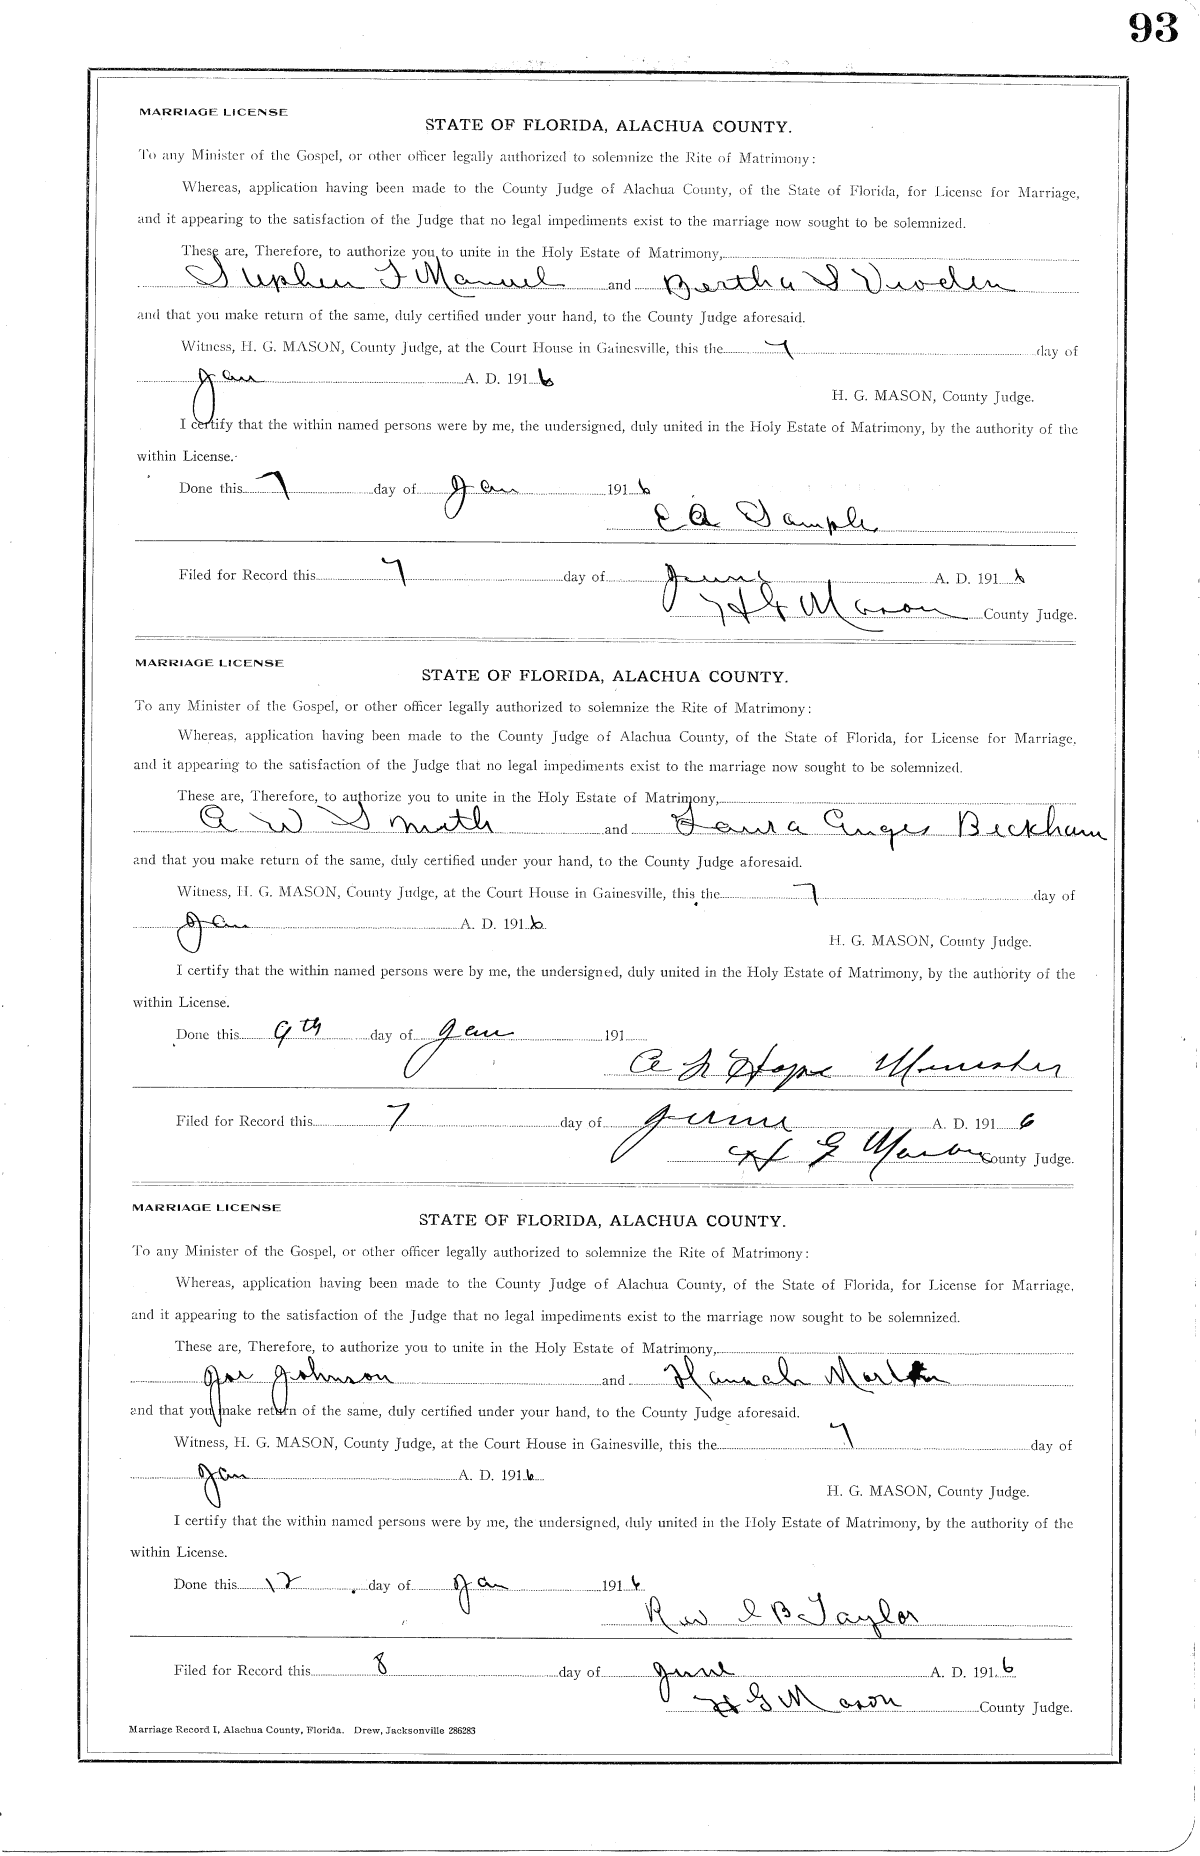 93
MARRIAGE LICENSE
STATE OF FLORIDA, ALACHUA COUNTY.
To any Minister of the Gospel, or other officer legally authorized to solemnize the Rite of Matrimony:
Whereas, application having been made to the County Judge of Alachua County, of the State of Florida, for License for Marriage,
and it appearing to the satisfaction of the Judge that no legal impediments exist to the marriage now sought to be solemnized.
These are, Therefore, to authorize you to unite in the Holy Estate of Matrimony,
Stephen F Manuel and Bertha S
and that you make return of the same, duly certified under your hand, to the County Judge aforesaid.
Witness, H. G. MASON, County Judge, at the Court House in Gainesville, this the 7 day of
Jan A. D. 1916
H. G. MASON, County Judge.
I certify that the within named persons were by me, the undersigned, duly united in the Holy Estate of Matrimony, by the authority of the
within License.
Done this 7 day of Jan 1916
E A Sample
Filed for Record this 7 day of June A. D. 1916
H G Mason County Judge.
MARRIAGE LICENSE
STATE OF FLORIDA, ALACHUA COUNTY.
To any Minister of the Gospel, or other officer legally authorized to solemnize the Rite of Matrimony:
Whereas, application having been made to the County Judge of Alachua County, of the State of Florida, for License for Marriage,
and it appearing to the satisfaction of the Judge that no legal impediments exist to the marriage now sought to be solemnized.
These are, Therefore, to authorize you to unite in the Holy Estate of Matrimony,
A W Smith and Laura Anges Beckham
and that you make return of the same, duly certified under your hand, to the County Judge aforesaid.
Witness, H. G. MASON, County Judge, at the Court House in Gainesville, this the 7 day of
Jan A. D. 1916
H. G. MASON, County Judge.
I certify that the within named persons were by me, the undersigned, duly united in the Holy Estate of Matrimony, by the authority of the
within License.
Done this 9th day of Jan 191
Hope Minister
Filed for Record this 7 day of June A. D. 1916
H G Mason County Judge.
MARRIAGE LICENSE
STATE OF FLORIDA, ALACHUA COUNTY.
To any Minister of the Gospel, or other officer legally authorized to solemnize the Rite of Matrimony:
Whereas, application having been made to the County Judge of Alachua County, of the State of Florida, for License for Marriage,
and it appearing to the satisfaction of the Judge that no legal impediments exist to the marriage now sought to be solemnized.
These are, Therefore, to authorize you to unite in the Holy Estate of Matrimony,
Joe Johnson and Hannah Martin
and that you make return of the same, duly certified under your hand, to the County Judge aforesaid.
Witness, H. G. MASON, County Judge, at the Court House in Gainesville, this the 7 day of
Jan A. D. 1916
H. G. MASON, County Judge.
I certify that the within named persons were by me, the undersigned, duly united in the Holy Estate of Matrimony, by the authority of the
within License.
Done this 12 day of Jan 1916
Rev I B Taylor
Filed for Record this 8 day of June A. D. 1916
H G Mason County Judge.
Marriage Record I, Alachua County, Florida. Drew, Jacksonville 286283